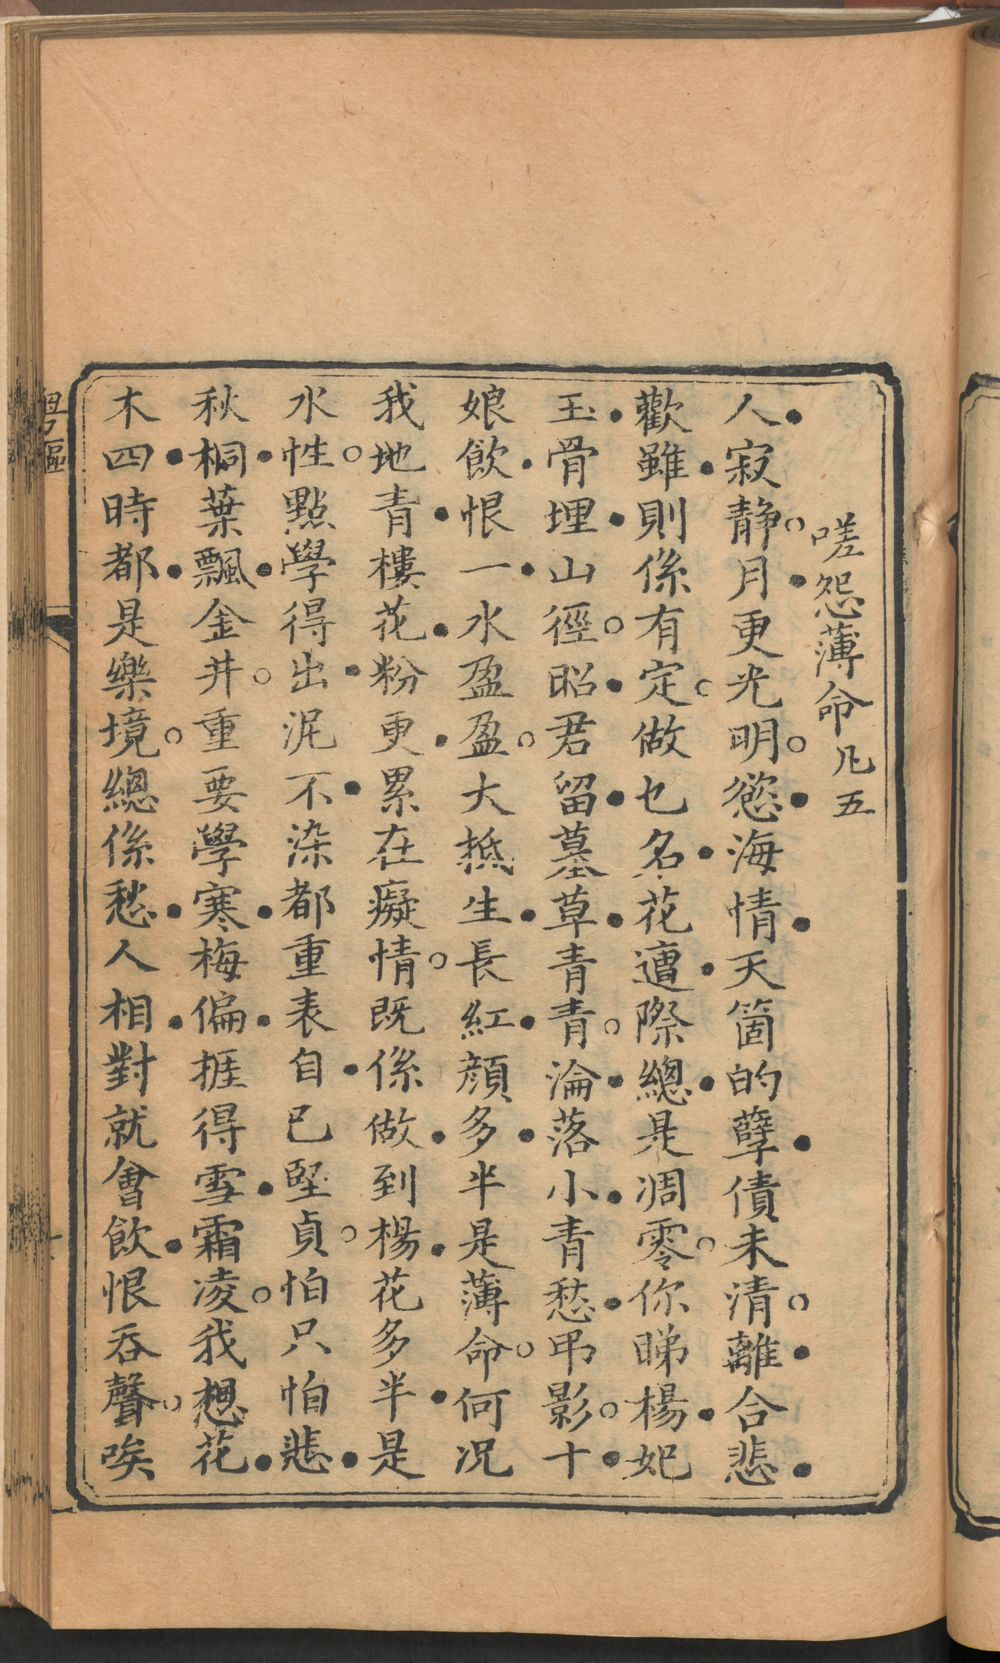 嗟怨薄命凡五
人寂静月更光明慾海情天箇的孽債未清離合悲
歡雖則係有定做乜名花遭際總是凋零你睇楊妃
玉骨埋山徑昭君留墓草青青淪落小青愁弔影十
娘飲恨一水盈盈大抵生長紅顔多半是薄命何况
我地青樓花粉更累在癡情既係做到楊花多半是
水性點學得出泥不染都重表自己堅貞怕只怕悲
秋桐葉飄金井重要學寒梅偏捱得雪霜凌我想花
木四時都是樂境總係愁人相對就會飲恨吞聲唉
粵謳